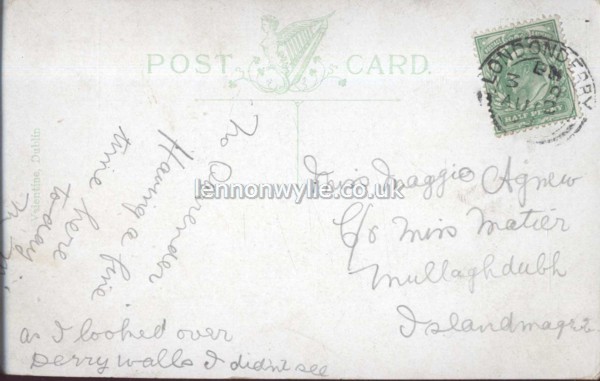 POST CARD.
LONDONDERRY
HALF
Valentine, Dublin
lennonwylie.co.uk
Miss Maggie Agnew
C/o Miss Matier
Mullaghdubh
Islandmagee
To
Having a fine
time here
to-day
as I looked over
Derry walls I didn't see